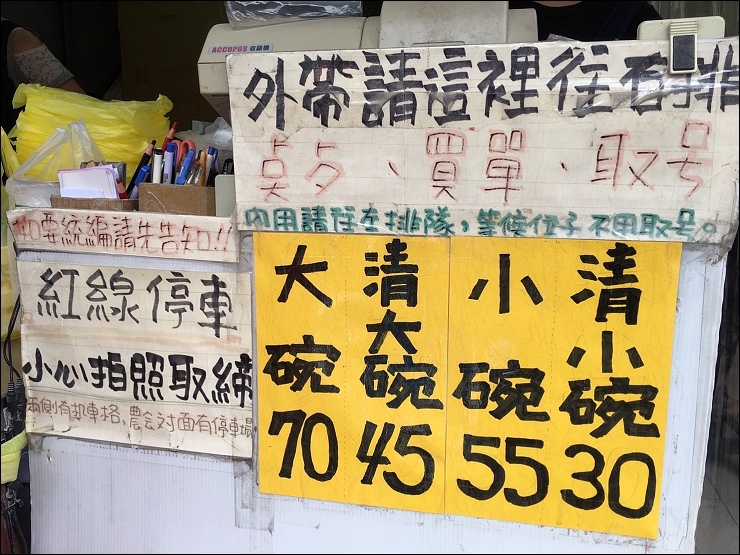 ACCUPOS 收銀機
外帶請這裡往右排
点夕、買單、取号
內用請往左排隊，等候位子不用取号。
如要統編請先告知!!
紅線停車
小心拍照取締
兩側有机車格，農会对面有停車場
大碗 70
清大碗 45
小碗 55
清小碗 30